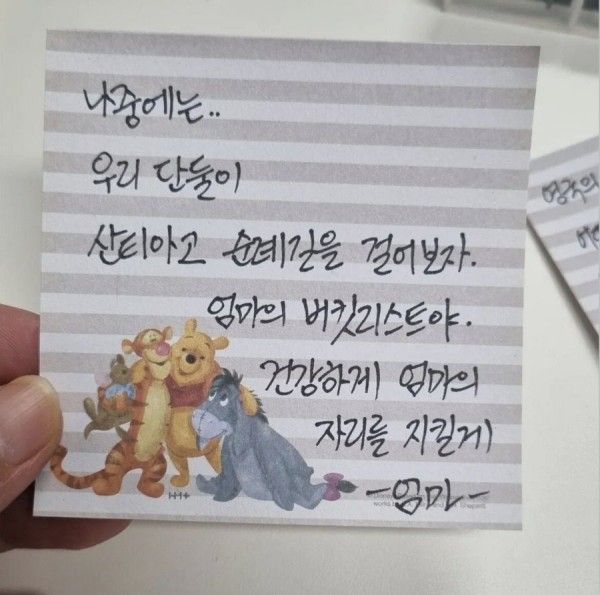 나중에는..
우리 단둘이
산티아고 순례길을 걸어보자.
엄마의 버킷리스트야.
건강하게 엄마의
자리를 지킬게
-엄마-
영국의